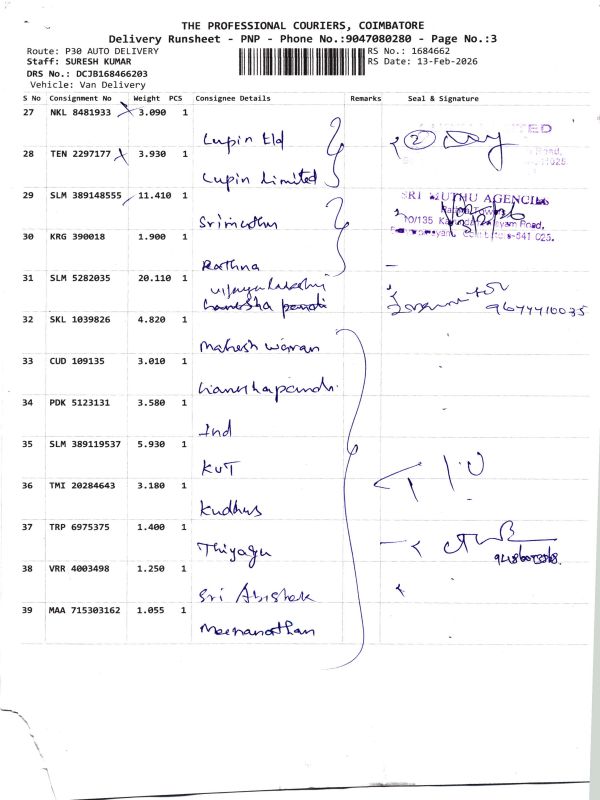 THE PROFESSIONAL COURIERS, COIMBATORE
Delivery Runsheet - PNP - Phone No.:9047080280 - Page No.:3
Route: P30 AUTO DELIVERY
RS No.: 1684662
Staff: SURESH KUMAR
RS Date: 13-Feb-2026
DRS No.: DCJB168466203
Vehicle: Van Delivery
S No Consignment No Weight PCS Consignee Details Remarks Seal & Signature
27 NKL 8481933 3.090 1
Lupin Ltd
28 TEN 2297177 3.930 1
Lupin Limited
29 SLM 389148555 11.410 1
SRI MUTHU AGENCIES
Srimuthu
30 KRG 390018 1.900 1
Rathna
31 SLM 5282035 20.110 1
9677710035
32 SKL 1039826 4.820 1
33 CUD 109135 3.010 1
34 PDK 5123131 3.580 1
Ind
35 SLM 389119537 5.930 1
KUT
36 TMI 20284643 3.180 1
Kudhus
37 TRP 6975375 1.400 1
Thiyagu
38 VRR 4003498 1.250 1
Sri Abishek
39 MAA 715303162 1.055 1
Meenanathan